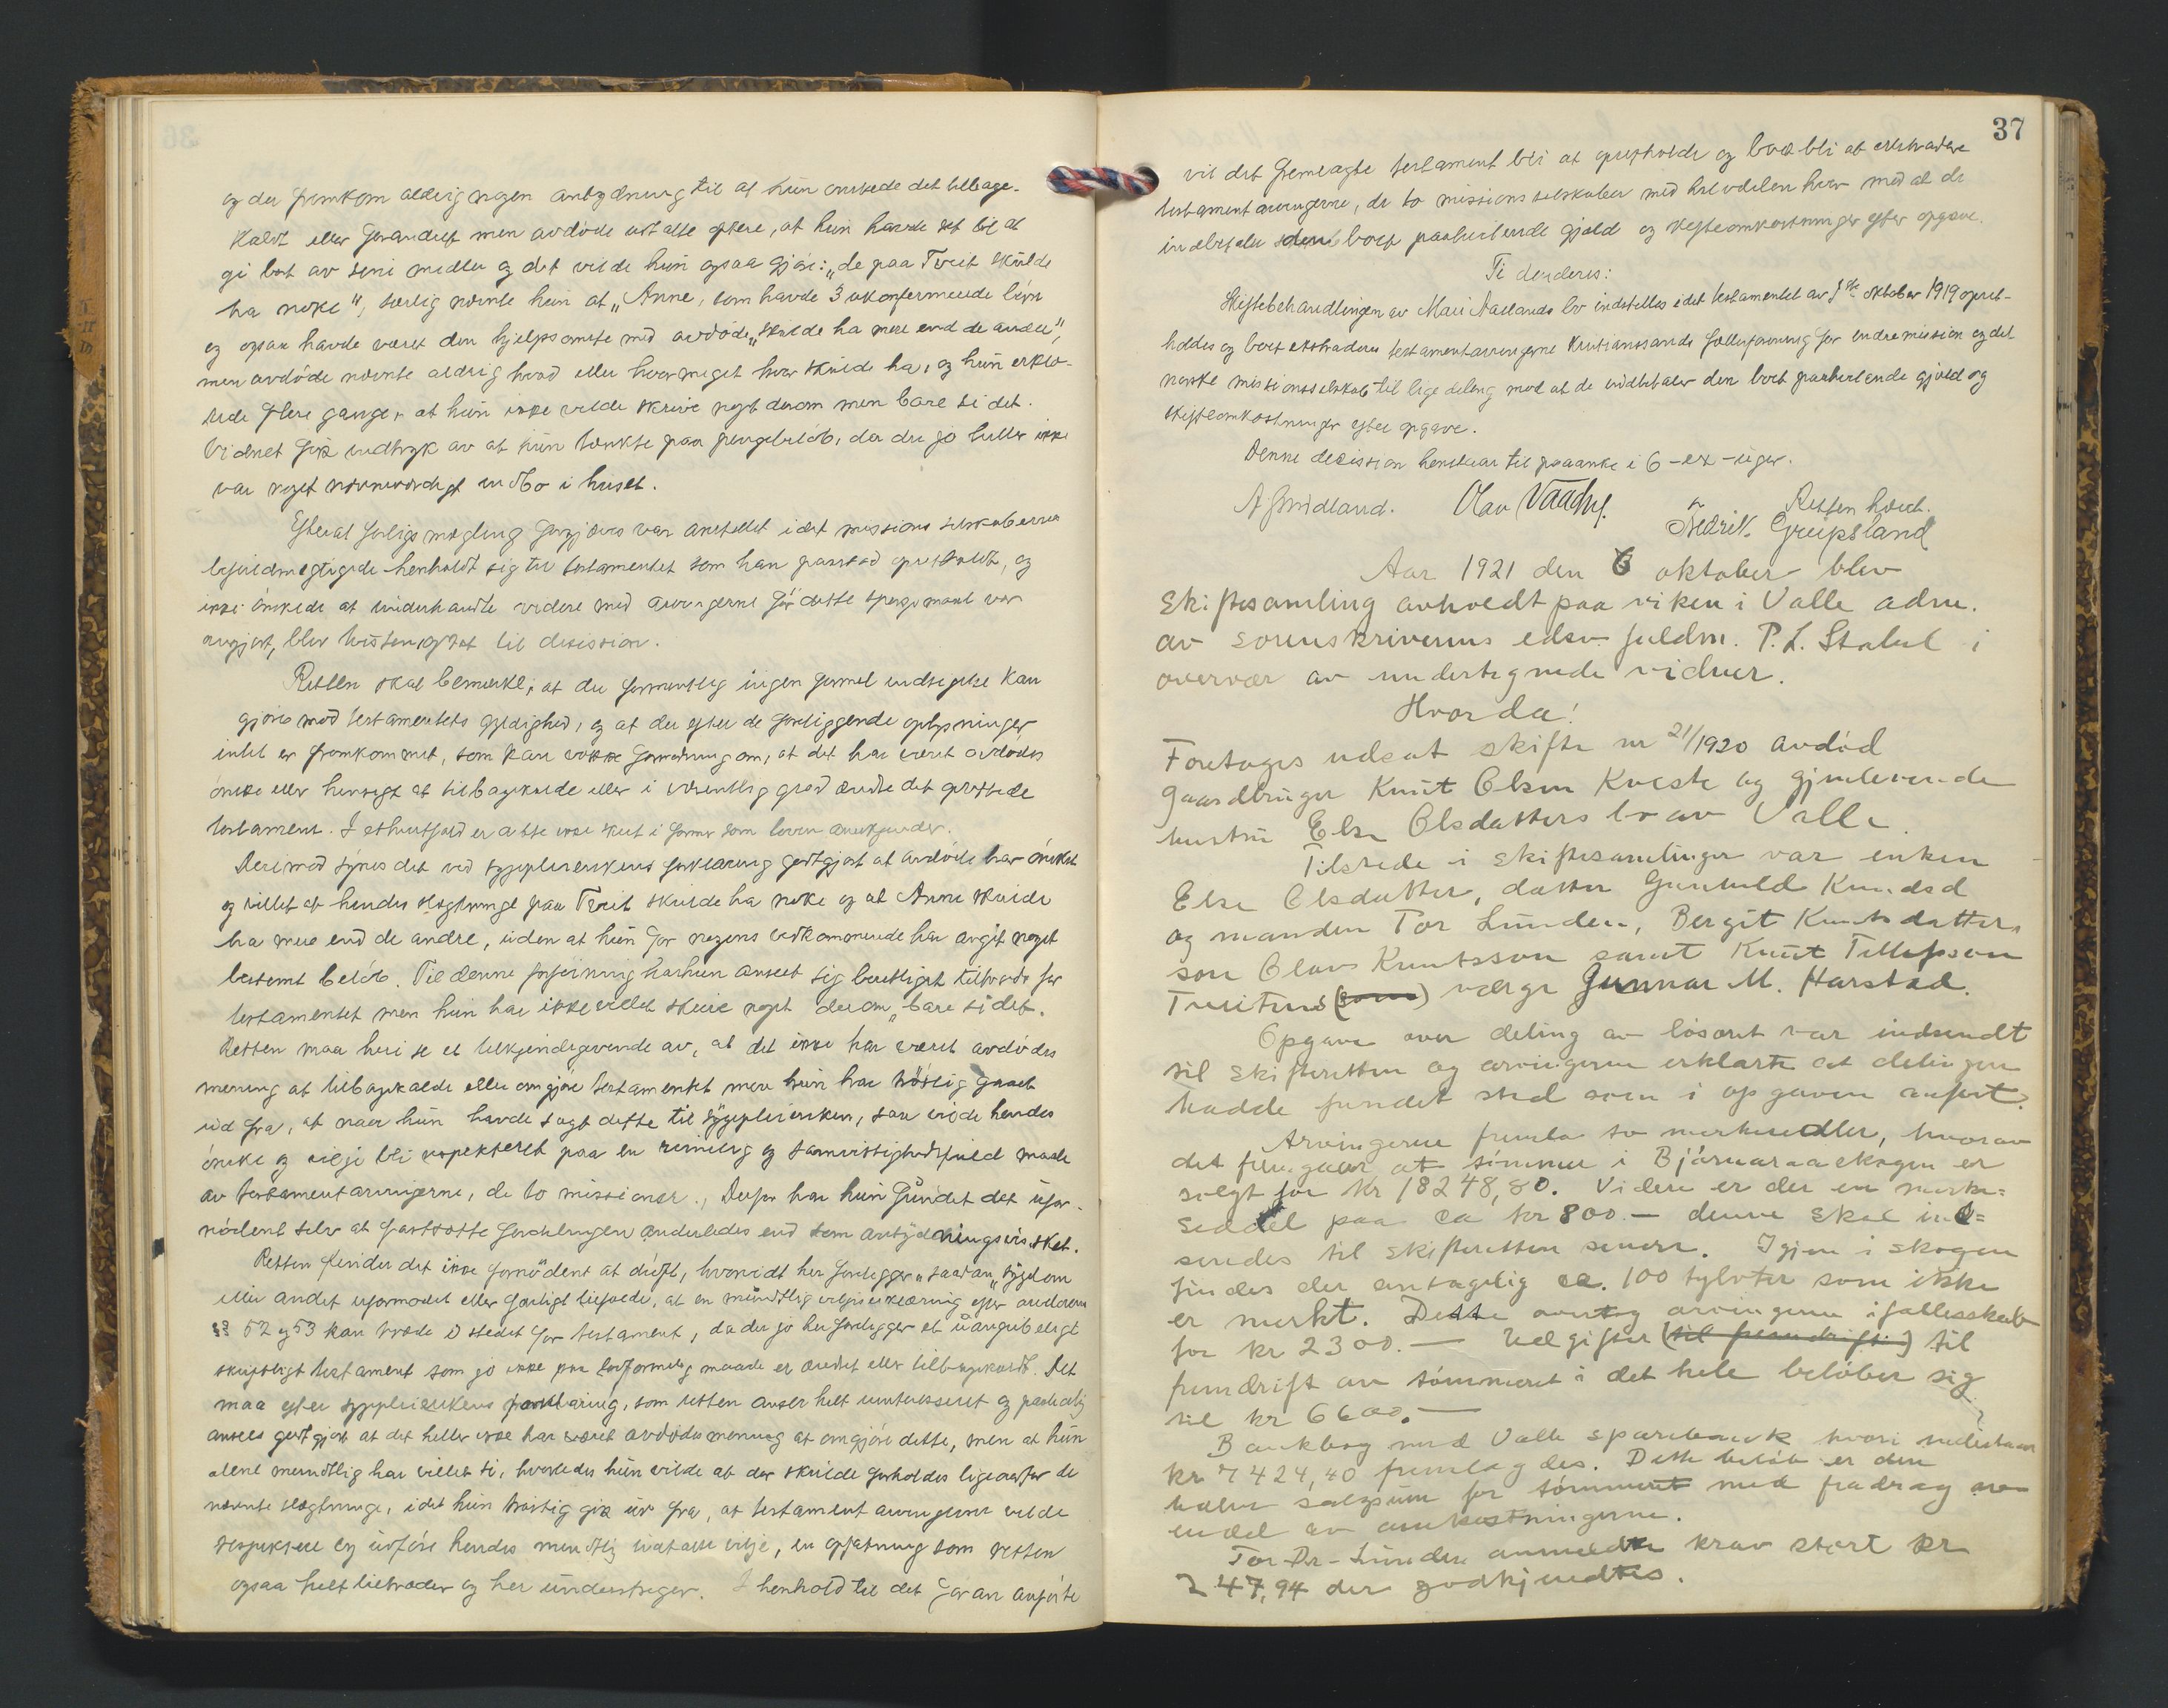 og der fremkom aldrig nogen antydning til at hun ønskede det tilbage-
kaldt eller forandret men avdøde uttalte oftere, at hun havde ret til at
gi bort av sine midler og det vilde hun ogsaa gjøre: „de paa Tveit skulde
ha noke", særlig nævnte hun at „Anne, som havde 3 ukonfermerede børn
og ogsaa havde været den hjelpsomste med avdøde, „skulde ha mere end de andre",
men avdøde nævnte aldrig hvad eller hvormeget hver skulde ha, og hun erklæ-
rede flere ganger at hun ikke vilde skrive noget derom men bare si det.
Vidnet fik indtryk av at hun tænkte paa pengebeløb, da der jo heller ikke
var noget nævneværdigt indbo i huset.
Efterat forligsmægling forgjæves var anstillet idet missionsselskaberne
befuldmægtigede henholdt sig til testamentet som han paastod opretholdt, og
ikke ønskede at underhandle videre med arvingerne før dette spørgsmaal var
avgjort, blev tvisten optat til desission.
Retten skal bemerke, at der formentlig ingen formel indsigelse kan
gjøres mod testamentets gyldighed, og at der efter de foreliggende oplysninger
intet er fremkommet, som kan vække formodning om, at det har været avdødes
ønske eller hensigt at tilbagekalde eller i væsentlig grad ændre det oprettede
testament. I ethvertfald er dette ikke skeet i former som loven anerkjender.
Derimod synes det ved sygepleierskens forklaring godtgjort at avdøde har ønsket
og villet at hendes slegtninge paa Tveit skulde ha noke og at Anne skulde
ha mere end de andre, uden at hun for nogens vedkommende har angit noget
bestemt beløb. Til denne føining har hun anseet sig berettiget tiltrods for
testamentet men hun har ikke villet skrive noget derom „bare si det.
Retten maa heri se et tilkjendegivende av, at det ikke har været avdødes
mening at tilbagekalde eller omgjøre testamentet men hun har trøstig gaaet
ud fra, at naar hun havde sagt dette til sygepleiersken, saa vilde hendes
ønske og vilje bli respekteret paa en rimelig og samvittighedsfuld maate
av testamentarvingerne, de to missioner. Derfor har hun fundet det ufor-
nødent selv at fastsætte fordelingen anderledes end som antydningsvis sket.
Retten finder det ikke fornødent at drøfte, hvorvidt her foreligger „saadan „sygdom
eller andet uformodet eller farligt tilfælde, at en mundtlig viljeserklæring efter arvelovens
§§ 52 og 53 kan træde istedet for testament, da der jo her foreligger et uangribeligt
skriftligt testament som jo ikke paa lovformelig maade er ændret eller tilbagekaldt. Det
maa efter sygepleierskens forklaring, som retten anser helt uinteresseret og paalidelig
ansees godtgjort at det heller ikke har været avdødes mening at omgjøre dette, men at hun
alene mundtlig har villet si, hvorledes hun vilde at der skulde forholdes ligeoverfor de
nævnte slegtninge, idet hun trøstig gik ut fra, at testamentarvingerne vilde
respektere og utføre hendes mundtlig uttalte vilje, en opfatning som retten
ogsaa helt tiltræder og her understreger. I henhold til det foran anførte
37
vil det fremlagte testament bli at opretholde og boet bli at extradere
testamentarvingerne, de to missionsselskaber med halvdelen hver mod at de
indbetaler den boet paahvilende gjæld og skifteomkostninger efter opgave.
Ti decideres:
Skiftebehandlingen av Mari Aaslands bo indstilles idet testamentet av 7de oktober 1919 opret-
holdes og boet extraderes testamentarvingerne Kristianssands fællesforening for indremission og det
norske missionsselskab til lige deling mod at de indbetaler den boet paahvilende gjæld og
skifteomkostninger efter opgave.
Denne desission henstaar til paaanke i 6 – sex – uger.
Retten hævet.
A Smidland. Olav Vaadne. Fredrik Greipsland
Aar 1921 den 6 oktober blev
skiftesamling avholdt paa viken i Valle adm.
av sorenskriverens edsv. fuldm. P. L. Stabel i
overvær av undertegnede vidner.
Hvorda!
Foretoges udsat skifte nr 21/1920 avdød
gaardbruger Knut Olsen Kveste og gjenlevende
hustru Else Olsdatters bo av Valle.
Tilstede i skiftesamlingen var enken
Else Olsdatter, datter Gunhild Knudsd
og manden Tor Lunden, Bergit Knutsdatter,
son Olav Knutsson samt Knut Tellefsson
(som) verge Gunnar M. Harstad.
Opgave over deling av løsøret var indsendt
til skifteretten og arvingerne erklærte at delingen
hadde fundet sted som i opgaven anført.
Arvingerne fremla to merkesedler, hvorav
det fremgaar at tømmer i Bjørnaraaskogen er
solgt for kr 18248,80. Videre er der en merke=
seddel paa ca kr 800.— denne skal ind=
sendes til skifteretten senere. Igjen i skogen
findes der antagelig ca. 100 tylvter som ikke
er merkt. Dette overtog arvingerne i fællesskab
for kr 2300.— Udgifter (til fremdrift) til
fremdrift av tømmeret i det hele beløber sig
til kr 6600.—
Bankbog med Valle sparebank hvori indestaar
kr 7424,40 fremlagdes. Dette beløb er den
halve salgssum for tømmeret med fradrag av
endel av omkostningerne.
Tor Dr. Lunden anmeldte krav stort kr
247,94 der godkjendtes.